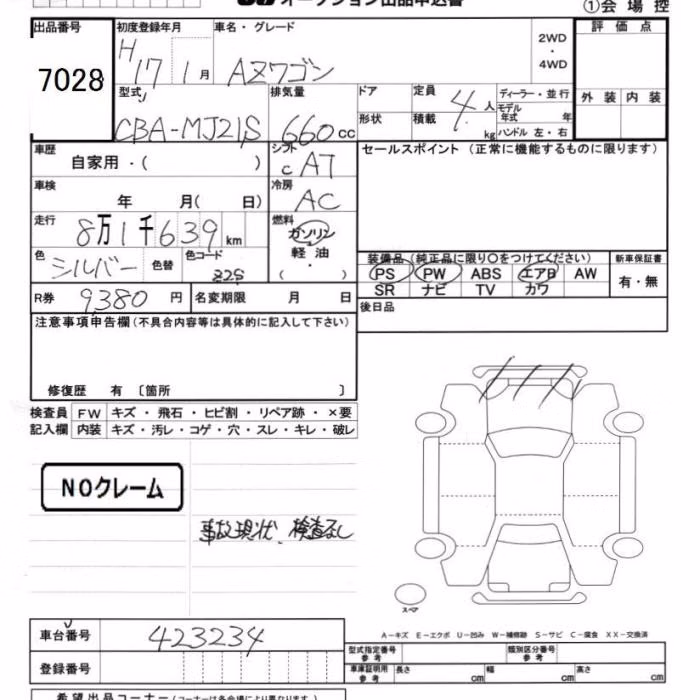 オークション出品申込書
①会場控
出品番号 7028
初度登録年月 H 17 1月
車名・グレード AZワゴン
2WD・4WD
評価点
外装 内装
型式 CBA-MJ21S
排気量 660cc
ドア
形状
定員 4人
積載 kg
ディーラー・並行
モデル年式 年
ハンドル 左・右
車歴 自家用・( )
シフト C AT
セールスポイント(正常に機能するものに限ります)
車検 年 月( 日)
冷房 AC
走行 8万1千639km
燃料 ガソリン
軽油
・
( )
色 シルバー 色替 色コード Z2S
装備品(純正品に限り○をつけてください)
PS PW ABS エアB AW
SR ナビ TV カワ
新車保証書
有・無
R券 9380円 名変期限 月 日
後日品
注意事項申告欄(不具合内容等は具体的に記入して下さい)
修復歴 有〔箇所 〕
検査員 FW キズ・飛石・ヒビ割・リペア跡・×要
記入欄 内装 キズ・汚レ・コゲ・穴・スレ・キレ・破レ
NOクレーム
事故現状、検査なし
スペア
A-キズ E-エクボ U-凹み W-補修跡 S-サビ C-腐食 XX-交換済
車台番号 423234
型式指定番号 参考
類別区分番号 参考
登録番号
車庫証明用 参考 長さ cm 幅 cm 高さ cm
希望出品コーナー(コーナーは各会場により異なります。)